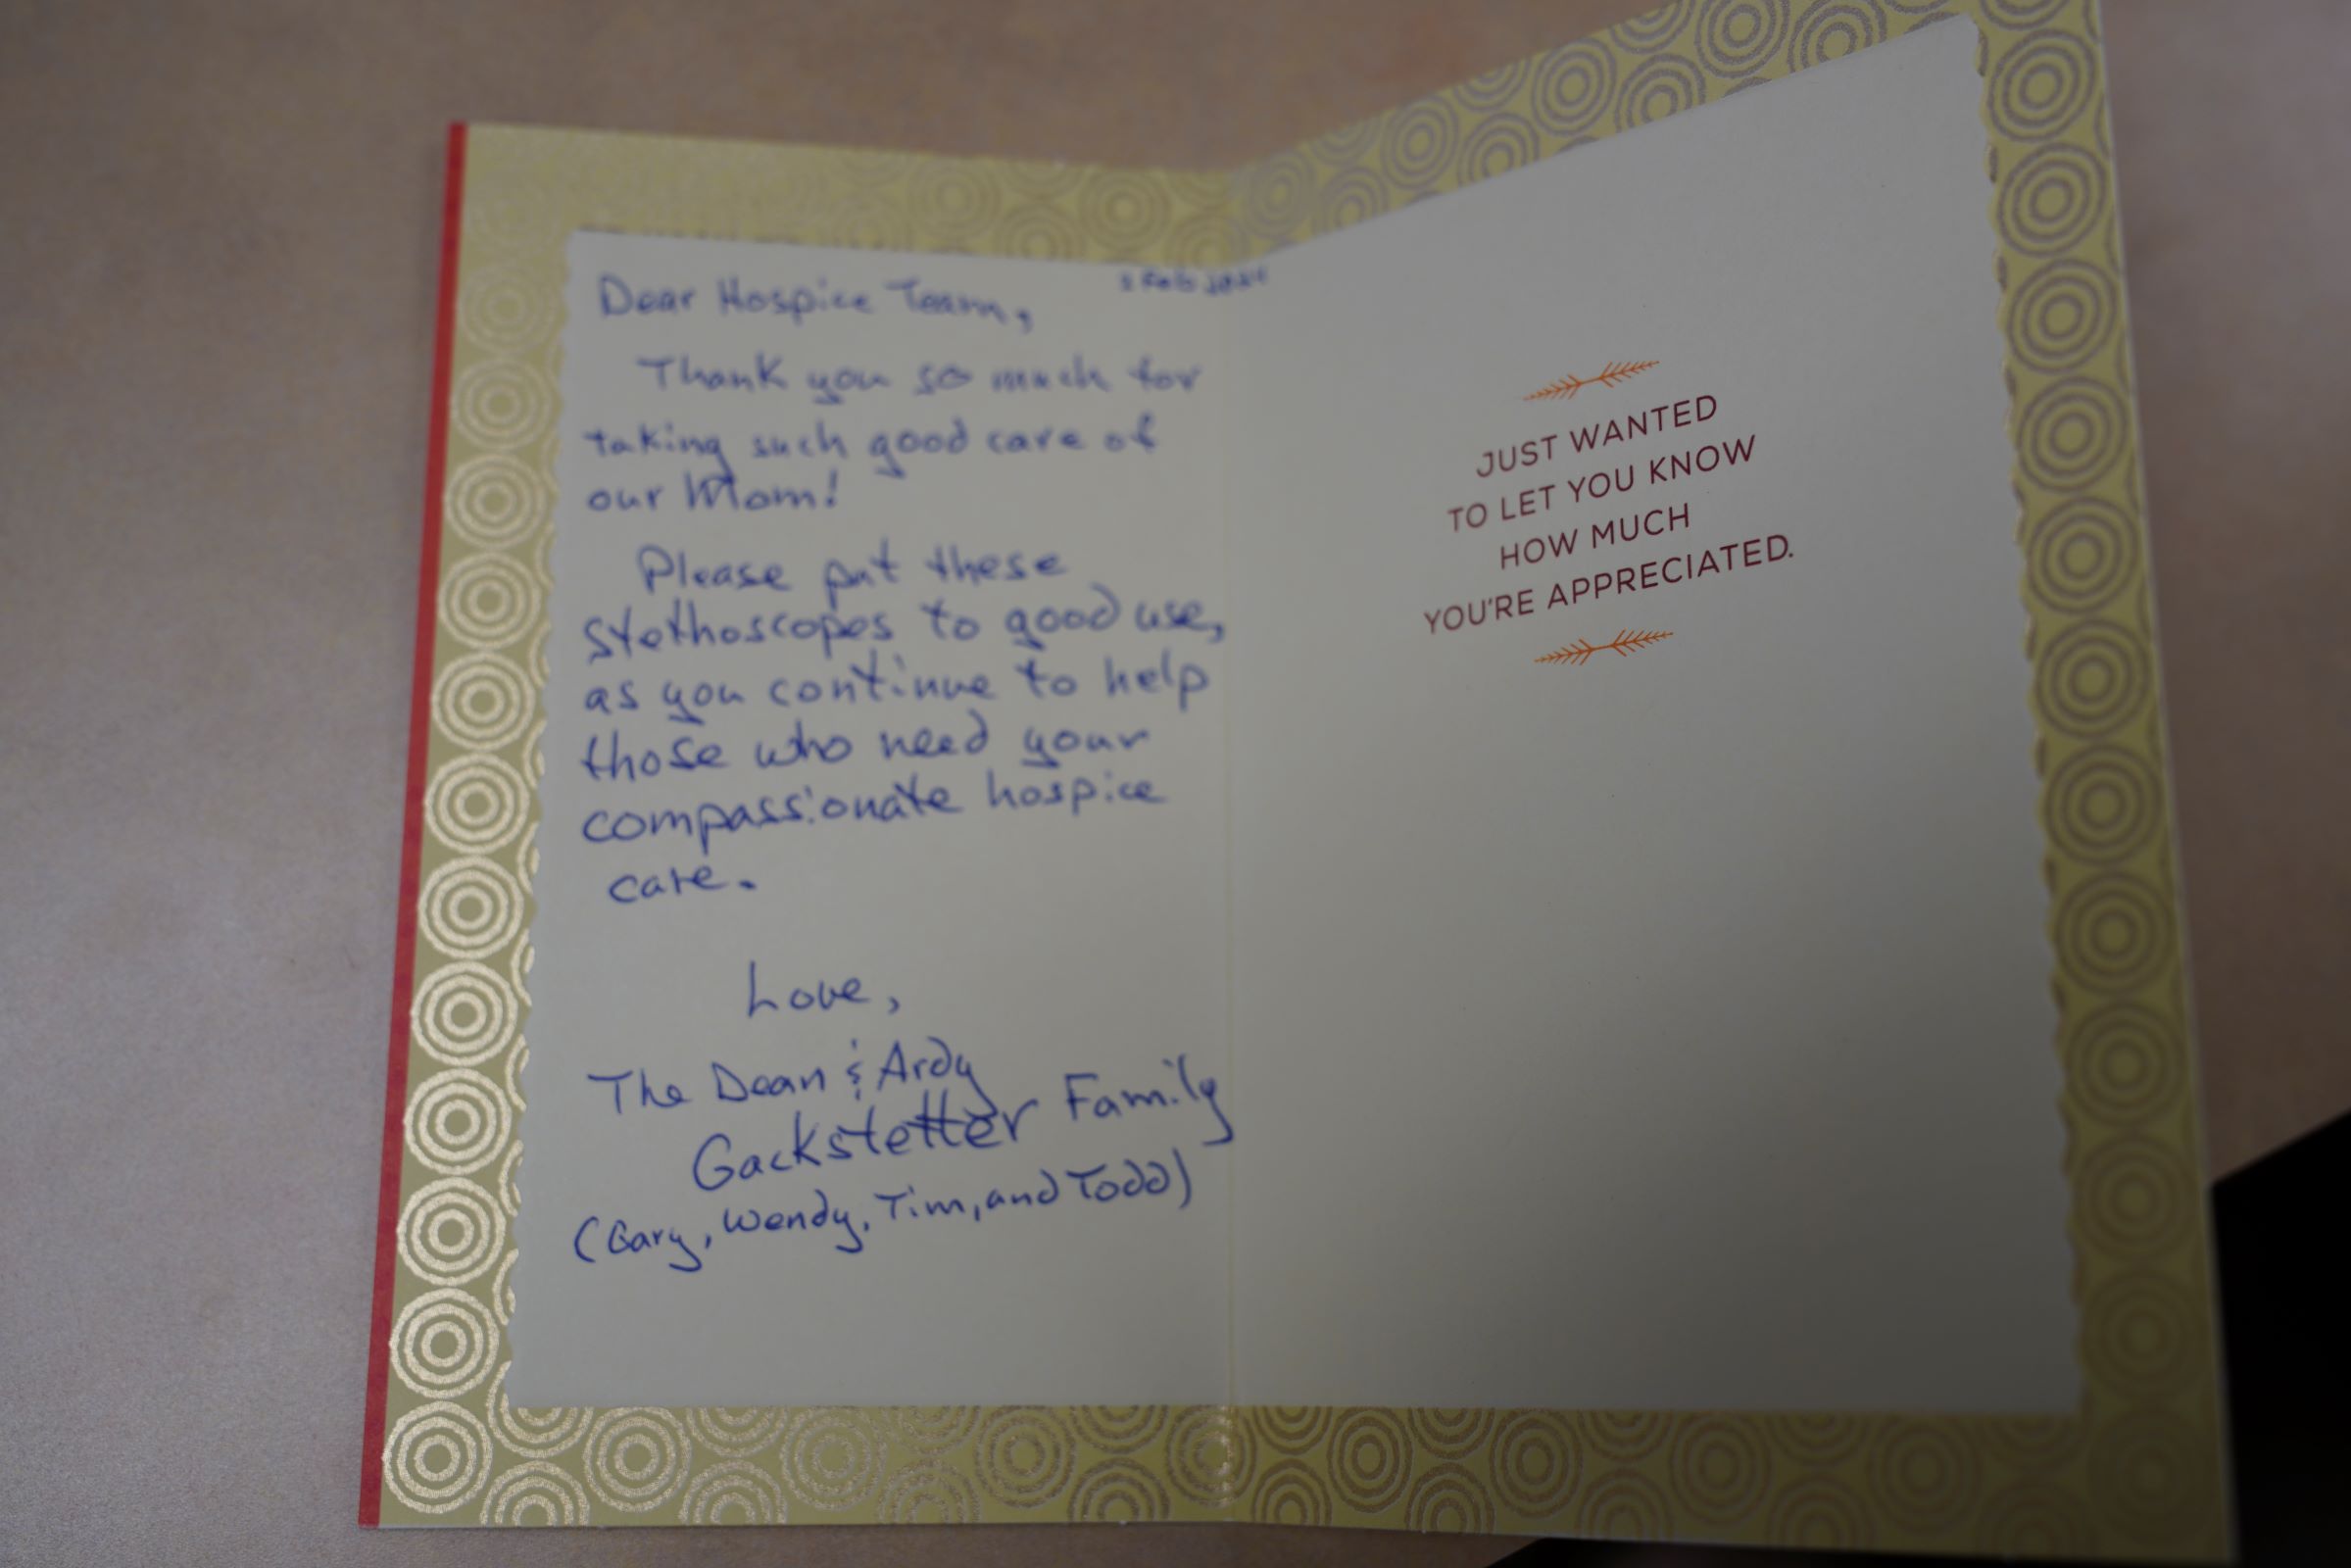 Feb
Dear Hospice Team,
Thank you so much for
taking such good care of
our Mom!
Please put these
stethoscopes to good use,
as you continue to help
those who need your
compassionate hospice
care.
Love,
The Dean & Ardy
Gackstetter Family
(Gary, Wendy, Tim, and Todd)
JUST WANTED
TO LET YOU KNOW
HOW MUCH
YOU'RE APPRECIATED.